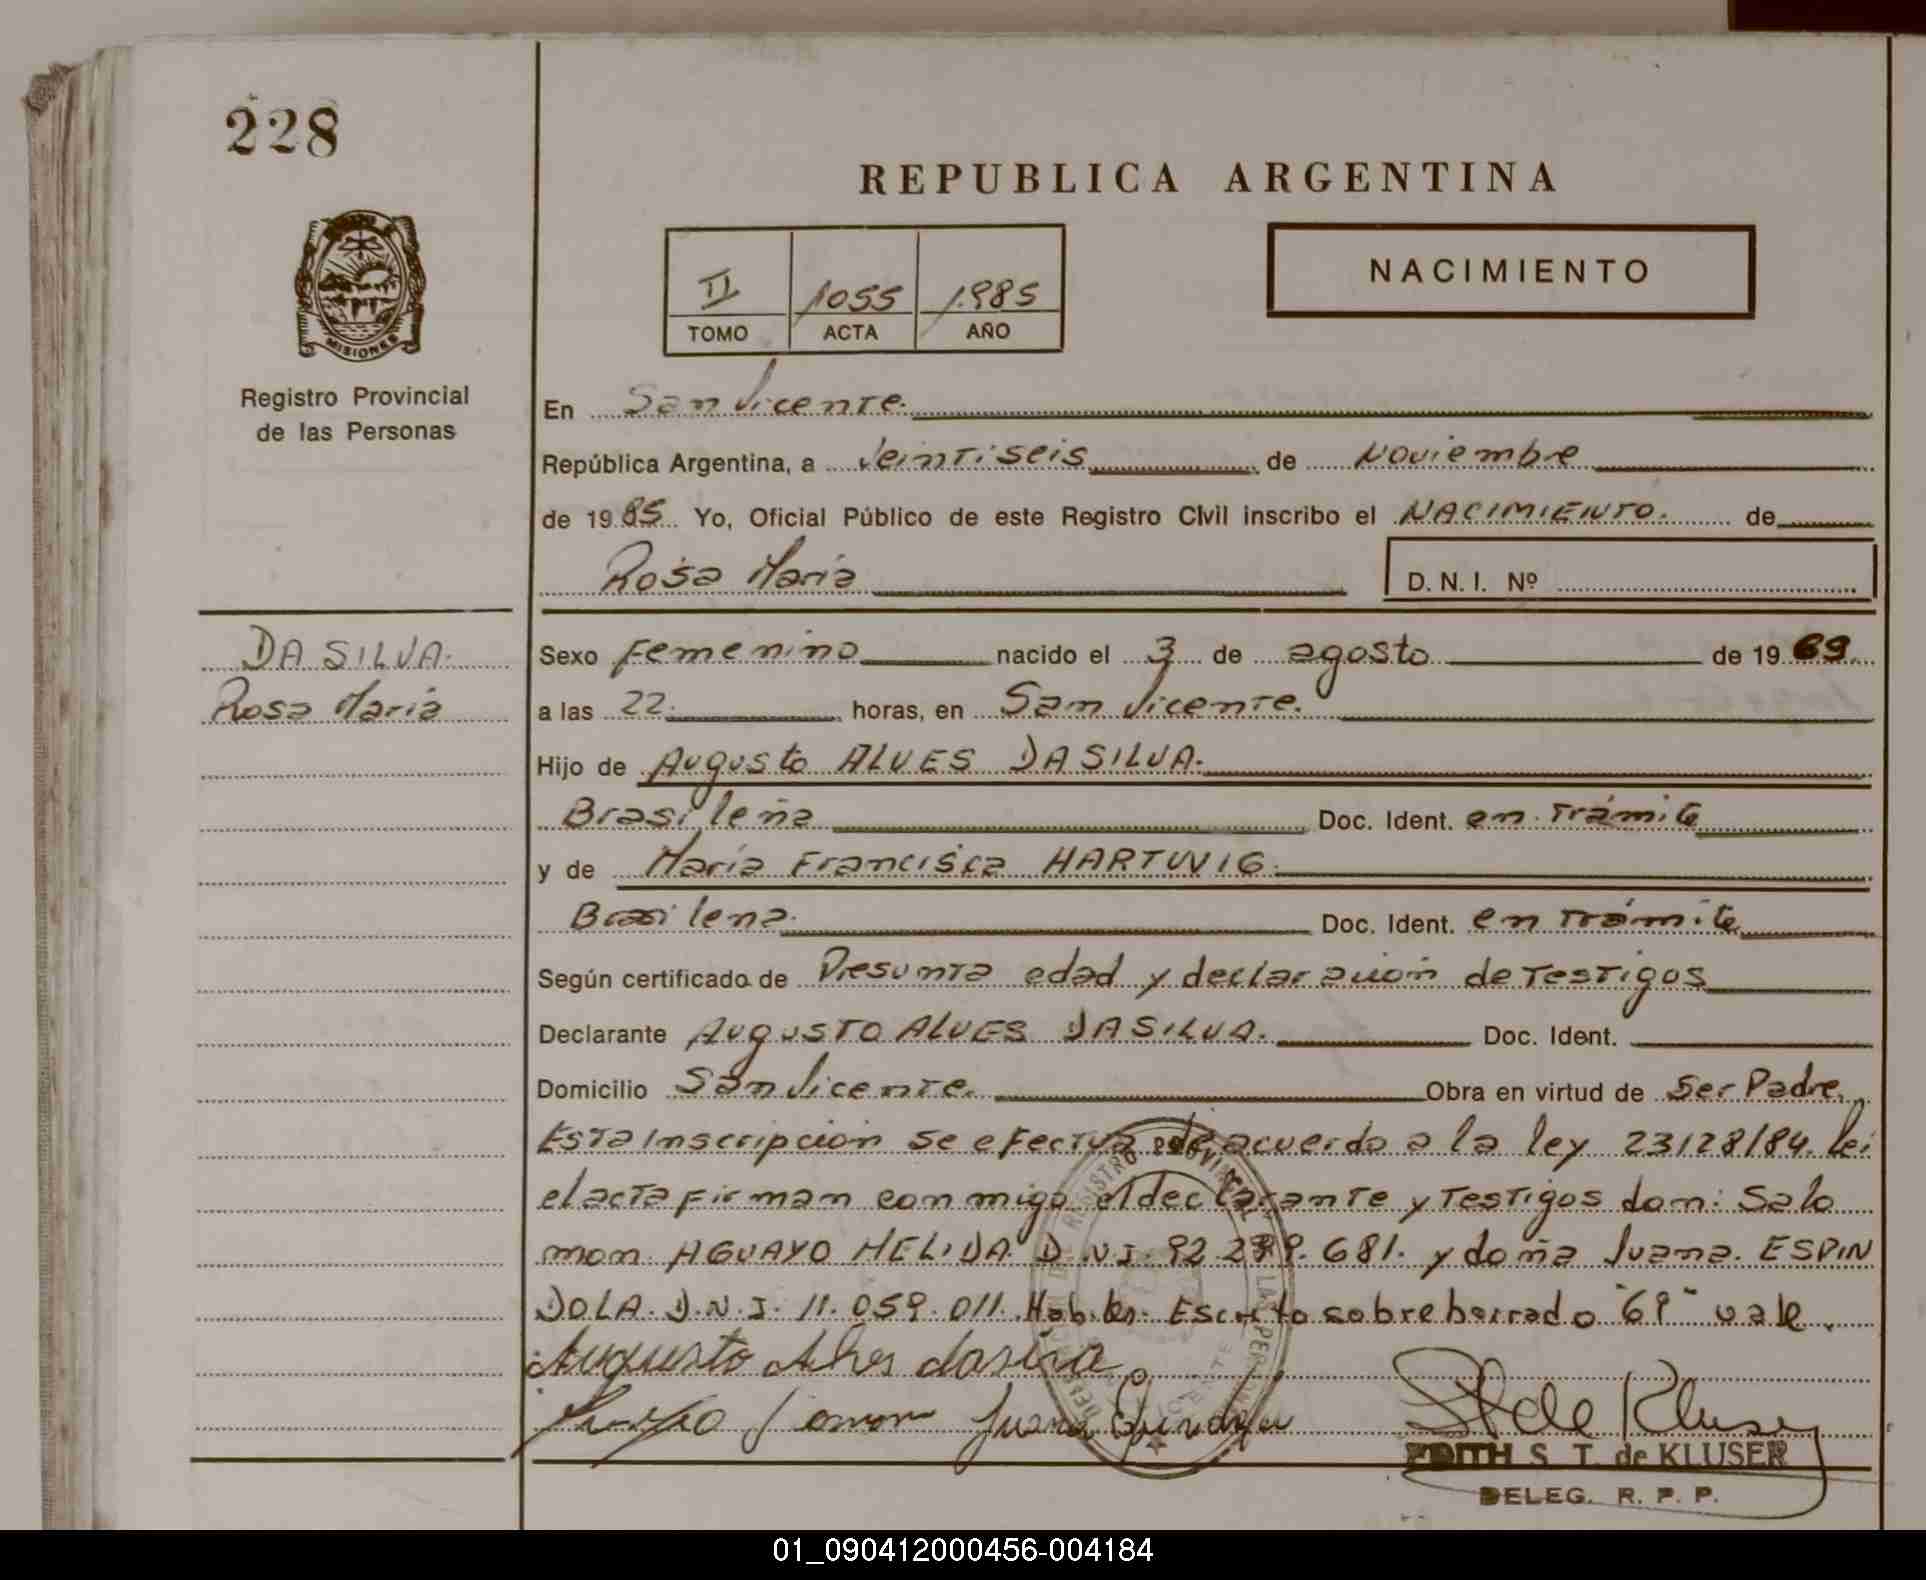 228
REPUBLICA ARGENTINA
NACIMIENTO
II 1055 1.985
TOMO ACTA AÑO
MISIONES
Registro Provincial
de las Personas
En San Vicente.
República Argentina, a Veintiseis de Noviembre
de 1985 Yo, Oficial Público de este Registro Civil inscribo el NACIMIENTO. de
Rosa Maria D. N. I. Nº
DA SILVA.
Rosa Maria
Sexo Femenino nacido el 3 de agosto de 1969.
a las 22. horas, en San Vicente.
Hijo de Augusto ALVES DA SILVA.
Brasileña Doc. Ident. en trámite
y de Maria Francisca HARTWIG.
Brasilena. Doc. Ident. en trámite
Según certificado de Presunta edad y declaración de Testigos
Declarante AUgUSTO ALVES DA SILVA. Doc. Ident.
Domicilio San Vicente. Obra en virtud de Ser Padre.
Esta Inscripción se efectua de acuerdo a la ley 23128/84. lei
el acta firman conmigo el declarante y Testigos don: Salo
mon AGUAYO MELIDA D.N.I. 92.2 9.681. y doña Juana. ESPIN
DOLA. D.N.I. 11.059.011. Habiles. Escrito sobre borrado "69" vale.
Augusto Alves dasilva
Juana
S T de Kluser
EDITH S. T. de KLUSER
DELEG. R. P. P.
REGISTRO PROVINCIAL DE LAS PERSONAS
01_090412000456-004184